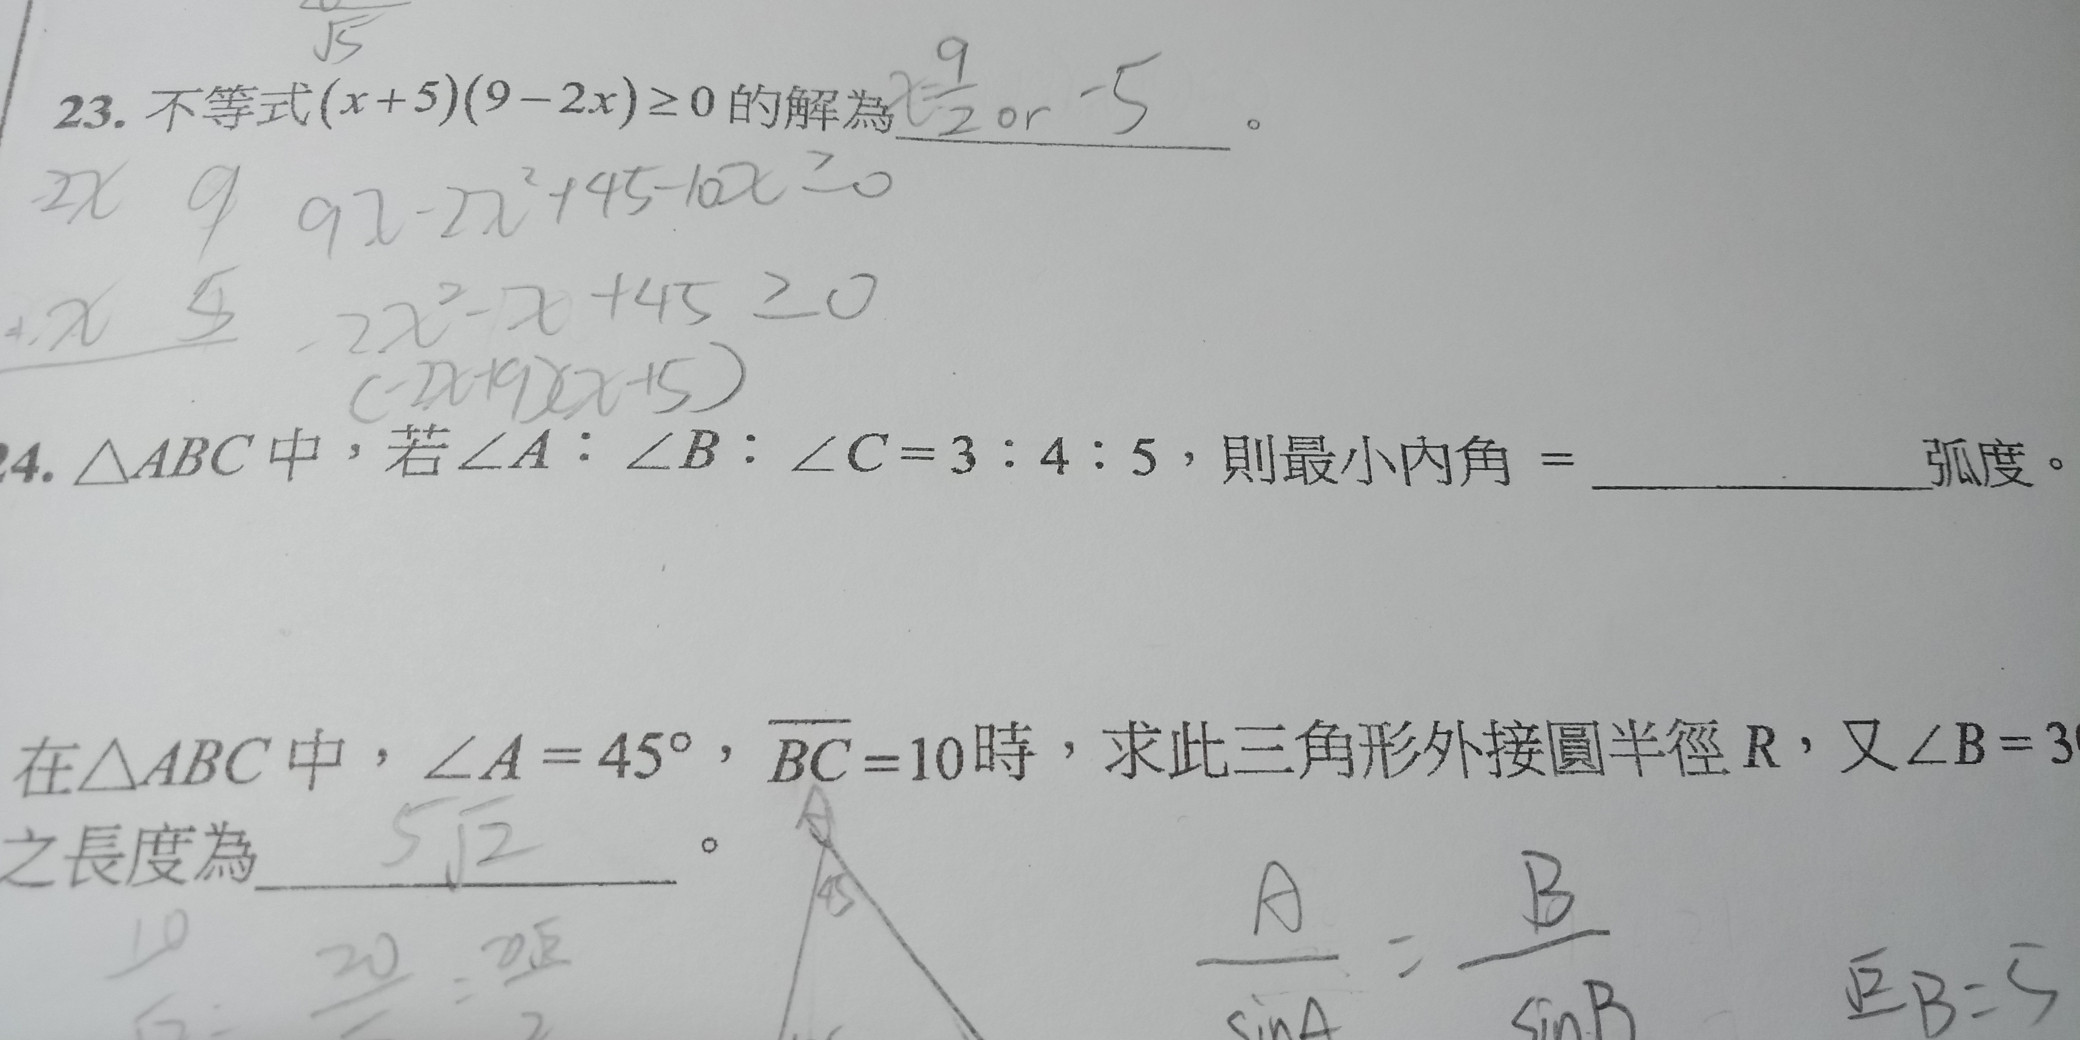 √5
23. 不等式(x+5)(9-2x)≥0的解為x=9/2 or -5。
-2x 9 9x-2x²+45-10x≥0
x 5 -2x²-x+45≥0
(-2x+9)(x+5)
24. △ABC中，若∠A：∠B：∠C=3：4：5，則最小內角 = 弧度。
在△ABC中，∠A=45°，BC=10時，求此三角形外接圓半徑R，又∠B=3
之長度為 5√2 。
A
45
A/sinA = B/sinB
√2B=5
10
20